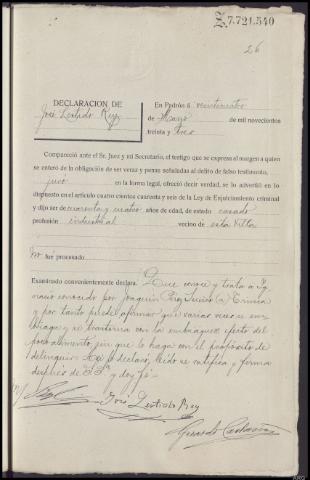 E 7.721.540
26
DECLARACION DE
José Rey
En Padrón á veinticuatro
de Mayo de mil novecientos
treinta y tres
Compareció ante el Sr. Juez y mi Secretario, el testigo que se expresa al margen a quien
se enteró de la obligación de ser veraz y penas señaladas al delito de falso testimonio,
juró en la forma legal, ofreció decir verdad, se lo advertió en lo
dispuesto en el artículo cuatro cientos cuarenta y seis de la Ley de Enjuiciamiento criminal
y dijo ser de cuarenta y cuatro años de edad, de estado casado
profesión industrial vecino de esta Villa
No fué procesado
Examinado convenientemente declara: Que conoce y trata a
conocido por Joaquín
y por tanto puede afirmar que varias veces se
y se trastorna con la embriaguez efecto del
poco alimento, sin que lo haga con el propósito de
delinquir. Así lo declaró, leído se ratifica y firma
después de S.Sª y doy fé.
José Rey
Gerardo